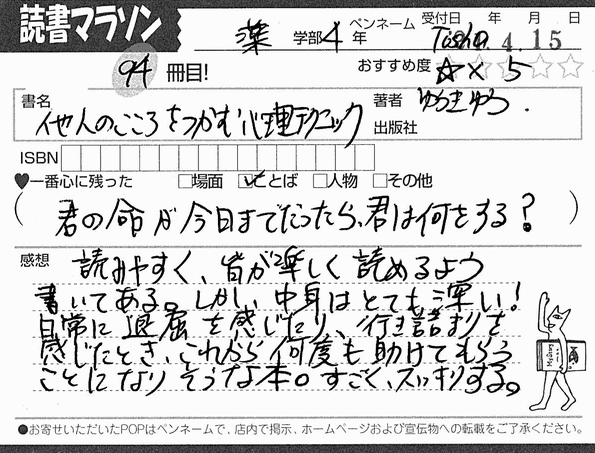 読書マラソン
薬 学部 4 年 ペンネーム Tosho 受付日 年 月 日
4.15
94 冊目! おすすめ度 ☆×5☆☆
書名 他人のこころをつかむ心理テクニック 著者 ゆうきゆう.
出版社
ISBN
♥一番心に残った □場面 ☑ことば □人物 □その他
(君の命が今日までだったら、君は何をする?)
感想 読みやすく、皆が楽しく読めるよう
書いてある。しかし、中身はとても深い!
日常に退屈を感じたり、行き詰まりを
感じたとき、これから何度も助けてもらう
ことになりそうな本。すごく、スッキリする。
●お寄せいただいたPOPはペンネームで、店内で掲示、ホームページおよび宣伝物への転載をご了承ください。